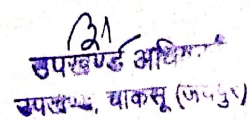 उपखण्ड अधि
उपखण्ड, चाकसू (जयपुर)